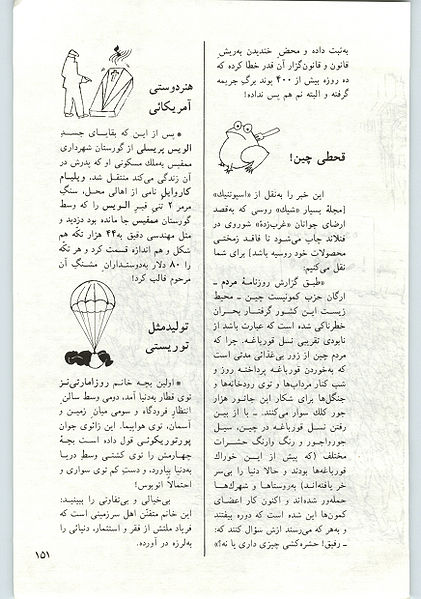 به‌ثبت داده و محض خندیدن به‌ریش
قانون و قانون‌گزار آن قدر خطا کرده که
ده روزه بیش از ۴۰۰ پوند برگ جریمه
گرفته و البته نم هم پس نداده!
قحطی چین!
این خبر را به‌نقل از «اسپوتنیك»
[مجلهٔ بسیار «شیك» روسی که به‌قصد
ارضای جوانان «غرب‌زدهٔ» شوروی در
فنلاند چاپ می‌شود تا فاقد زمختی
محصولات خود روسیه باشد] برای شما
نقل می‌کنیم:
«طبق گزارش روزنامهٔ مردم ـ
ارگان حزب کمونیست چین ـ محیط
زیست این کشور گرفتار بحران
خطرناکی شده است که عبارت باشد از
نابودی تقریبی نسل قورباغه. چرا که
مردم چین از زور بی‌غذائی مدتی است
که به‌خوردن قورباغه پرداخته روز و
شب کنار مرداب‌ها و توی رودخانه‌ها و
جنگل‌ها برای شکار این جانور هزار
جور کلك سوار می‌کنند. ـ با از بین
رفتن نسل قورباغه در چین، سیل
جورواجور و رنگ وارنگ حشرات
مختلف (که پیش از این خوراك
قورباغه‌ها بودند و حالا دنیا را بی‌سر
خر یافته‌اند) به‌روستاها و شهرك‌ها
حمله‌ور شده‌اند و اکنون کار اعضای
کمون‌ها این شده است که دوره بیفتند
و به‌هر که می‌رسند ازش سؤال کنند که:
ـ رفیق! حشره‌کشی چیزی داری یا نه؟»
هنردوستی
آمریکائی
• پس از این که بقایای جسد
الویس پریسلی از گورستان شهرداری
ممفیس به‌ملك مسکونی او که پدرش در
آن زندگی می‌کند منتقل شد، ویلیام
کاروایل نامی از اهالی محل، سنگ
مرمر ۲ تنی قبر الویس را که وسط
گورستان ممفیس جا مانده بود دزدید و
مثل مهندسی دقیق به‌۴۴ هزار تکه هم
شکل و هم اندازه قسمت کرد و هر تکّه
را ۸۰ دلار به‌دوستداران مشنگِ آن
مرحوم قالب کرد!
تولیدمثل
توریستی
• اولین بچه خانم روزامارتی‌نز
توی قطار به‌دنیا آمد، دومی وسط سالن
انتظار فرودگاه و سومی میان زمین و
آسمان، توی هواپیما. این زائوی جوان
پورتوریکوئی قول داده است بچهٔ
چهارمش را توی کشتی وسط دریا
به‌دنیا بیاورد، و دست کم توی سواری و
احتمالاً اتوبوس!
بی‌خیالی و بی‌تفاوتی را ببینید:
این خانم متفنّن اهل سرزمینی است که
فریاد ملتش از فقر و استثمار، دنیائی را
به‌لرزه در آورده.
۱۵۱